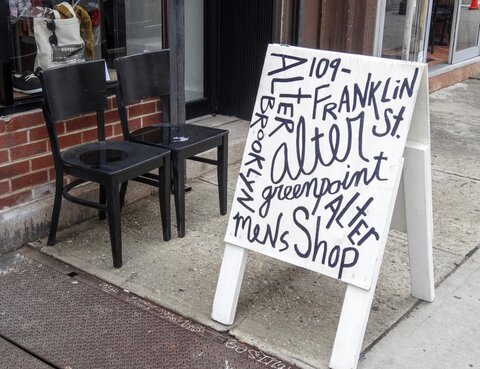 109-
FRANKLIN
ST.
ALTER
BROOKLYN
alter
greenpoint
ALTER
MENS Shop